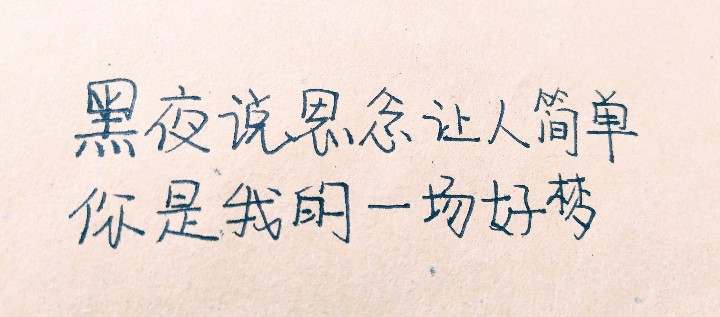 黑夜说思念让人简单
你是我的一场好梦